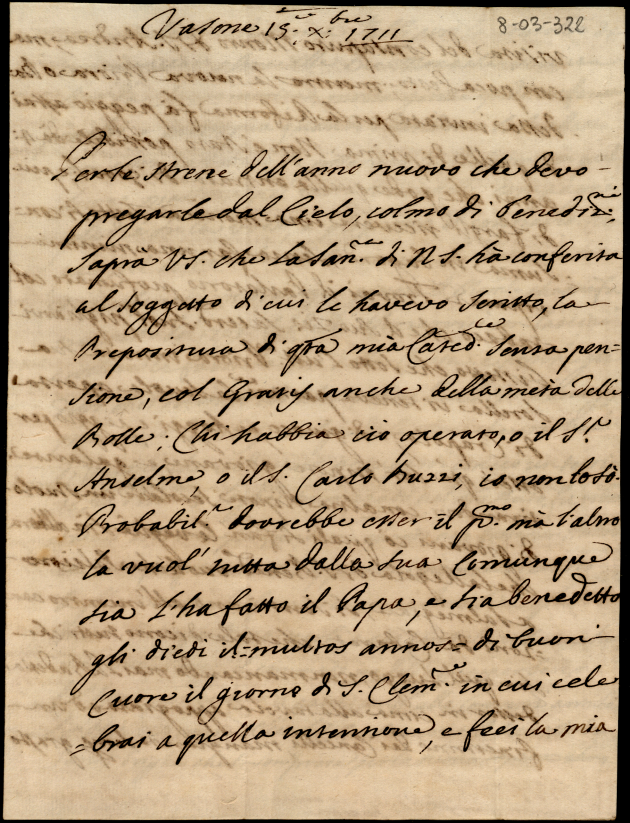 8-03-322
Vasone 15.e X.bre 1711
Per le strene dell'anno nuovo che devo
pregarle dal Cielo, colmo di benediz.ni,
saprà VS. che la San.e di NS. hà conferita
al soggetto di cui le havevo scritto, la
Prepositura di qta mia Cated.le senza pen=
sione, col Gratis anche della metà delle
Bolle; Chi habbia ciò operato, o il S.r
Anselme, o il S. Carlo Buzzi, io non lo sò.
Probabil.e dovrebbe esser il p.mo mà l'altro
la vuol' tutta dalla sua Comunque
sia l'ha fatto il Papa, e sia benedetto
gli diedi il=multos annos= di buon
Cuore il giorno di S. Clem.te in cui cele
=brai a quella intenzione, e feci la mia